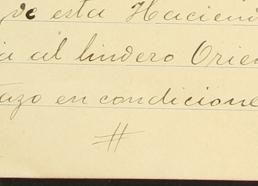 de esta Haciend
a al lindero Orien
azo en condicione
#